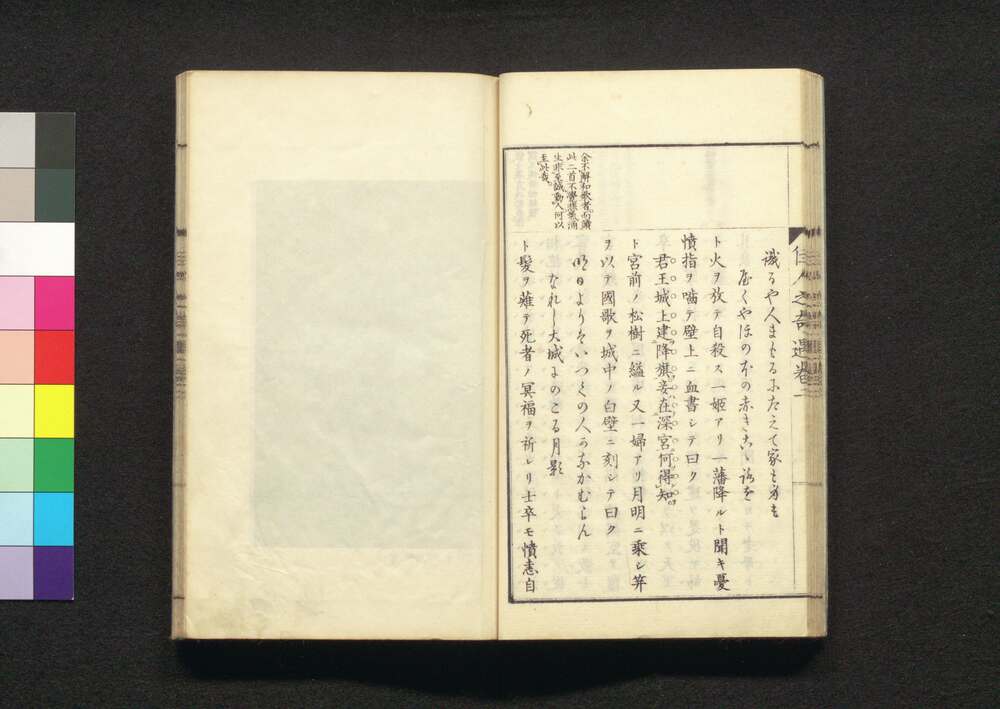 佳人之奇遇卷二
余不解和歌者而讀
此二首不覺悲氣涌
生非至誠動人何以
至此哉
るや人まもるにたえて家も身も
くやほのほの赤きこゝろを
ト火ヲ放テ自殺ス一姬アリ一藩降ルト聞キ憂
憤指ヲ嚙テ壁上ニ血書シテ曰ク
君王城上建降旗妾在深宮何得知
ト宮前ノ松樹ニ縊ル又一婦アリ月明ニ乘シ笄
ヲ以テ國歌ヲ城中ノ白壁ニ刻シテ曰ク
明日よりはいつくの人かなかむらん
なれし大城にのこる月影
ト髪ヲ薙テ死者ノ冥福ヲ祈レリ士卒モ憤恚自